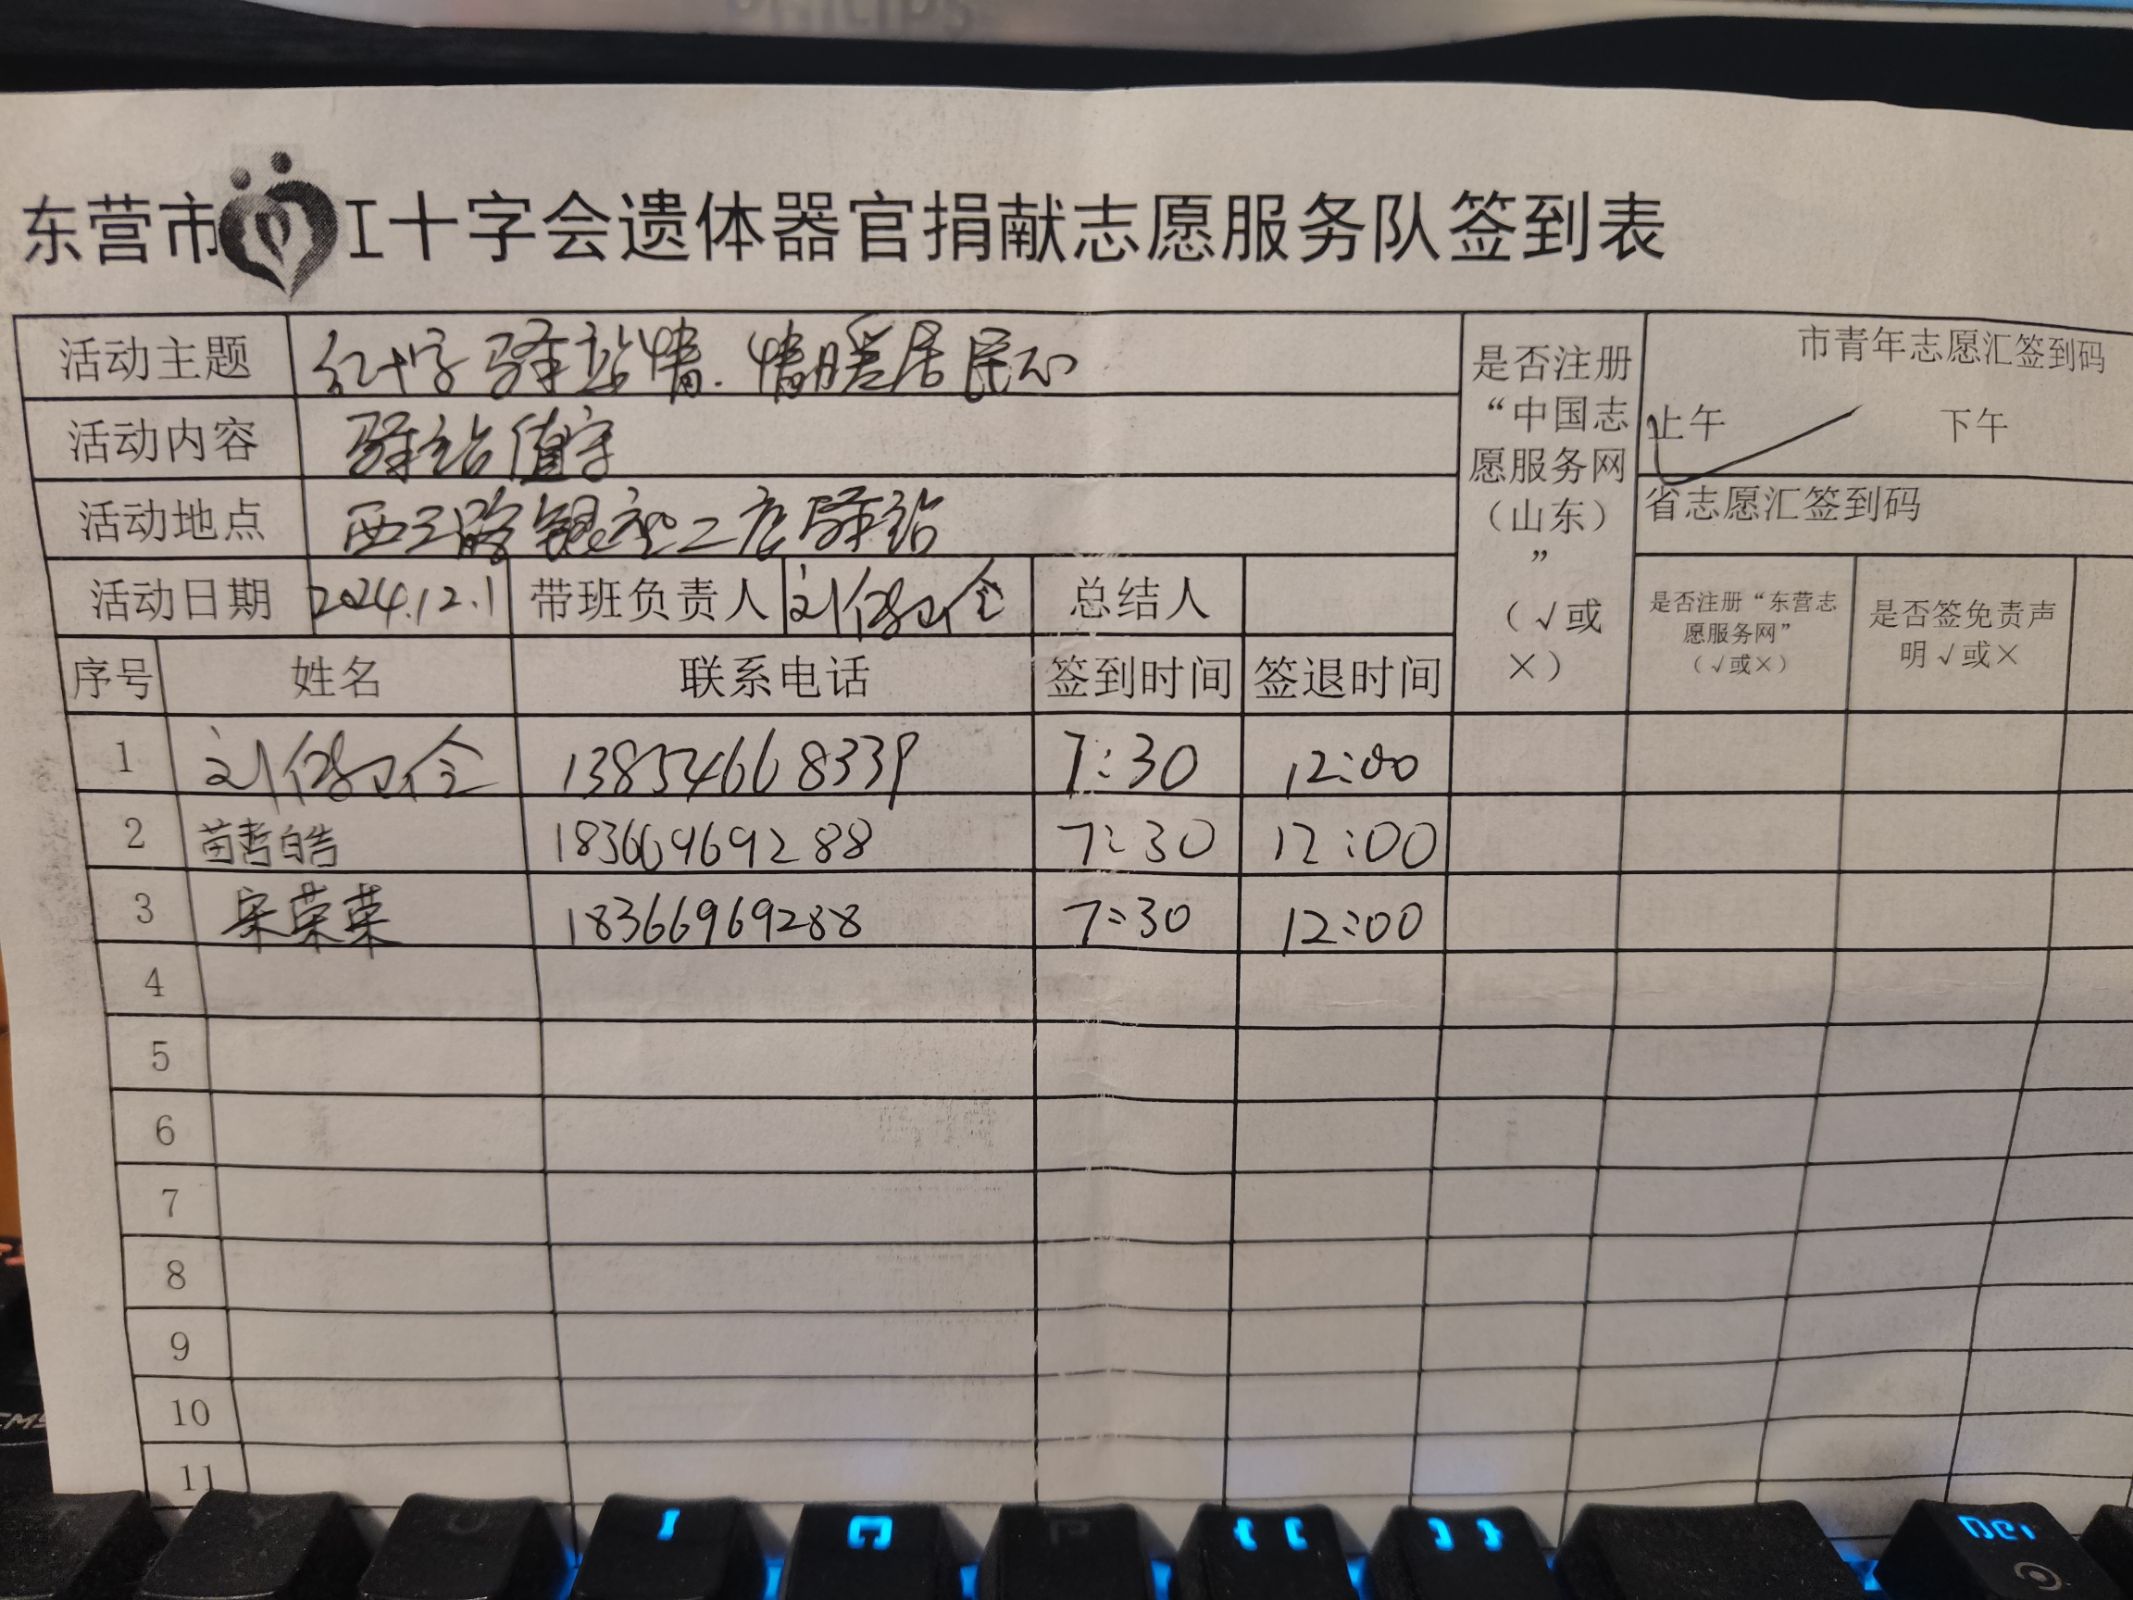 PHILIPS
东营市 工十字会遗体器官捐献志愿服务队签到表
活动主题 红十字驿站情.情暖居民心
活动内容 驿站值守
活动地点 西三路 驿站
活动日期 2024.12.1 带班负责人 刘 总结人
是否注册
“中国志
愿服务网
（山东）
”
（√或
×）
市青年志愿汇签到码
上午 下午
省志愿汇签到码
是否注册“东营志
愿服务网”
（√或×）
是否签免责声
明√或×
序号 姓名 联系电话 签到时间 签退时间
1 刘 13854668339 7:30 12:00
2 苗哲皓 18366969288 7:30 12:00
3 宋荣荣 18366969288 7:30 12:00
4
5
6
7
8
9
10
11